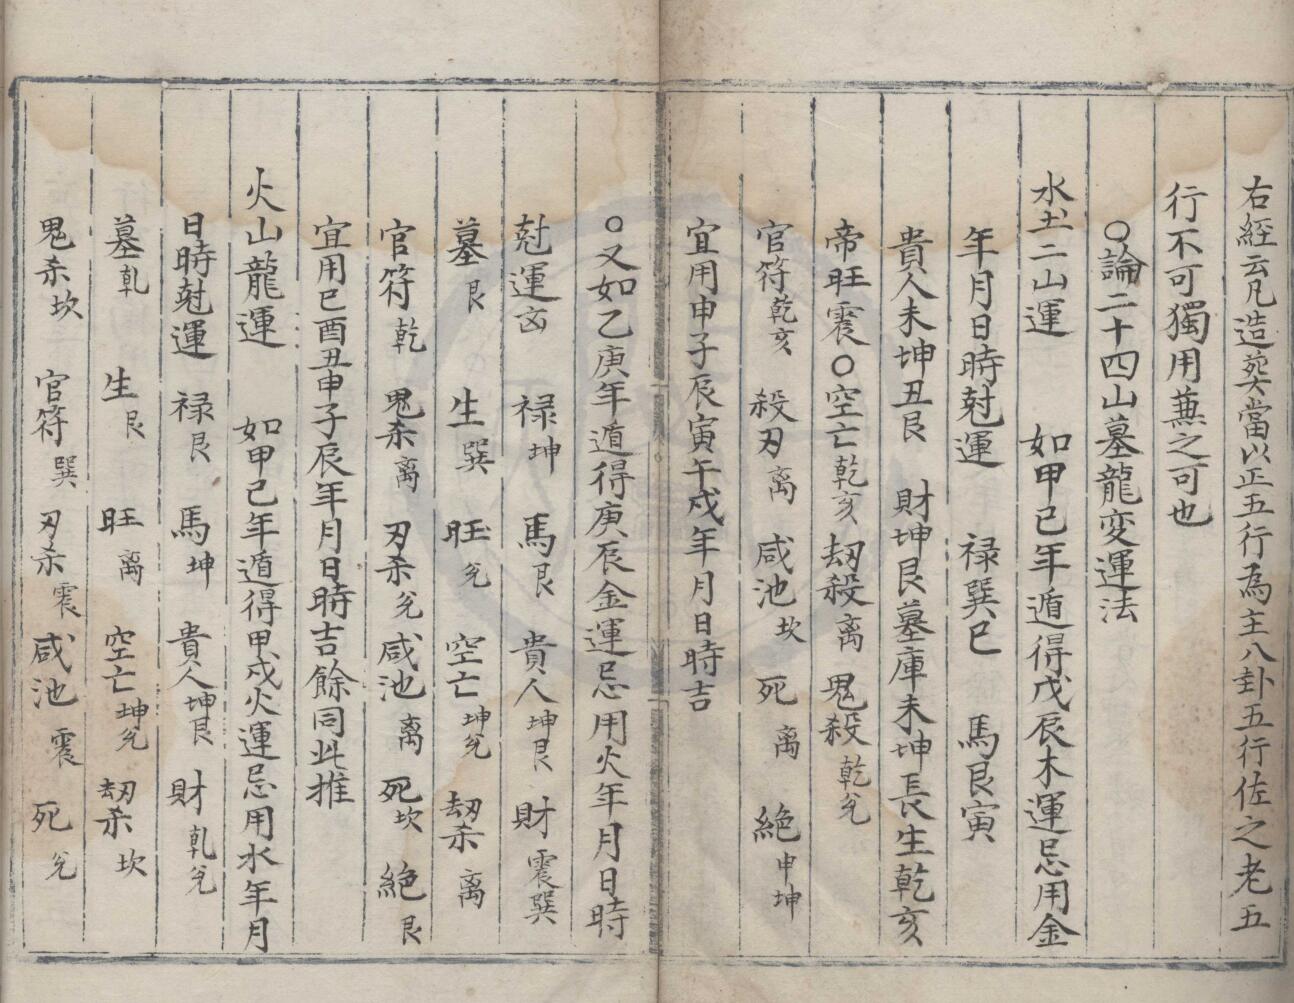 右經云凡造葬當以正五行為主八卦五行佐之老五
行不可獨用兼之可也
○論二十四山墓龍变運法
水土二山運 如甲己年遁得戊辰木運忌用金
年月日時尅運 禄巽巳 馬艮寅
貴人未坤丑艮 財坤艮墓庫未坤長生乾亥
帝旺震○空亡乾亥 刼殺离 鬼殺乾兊
官符乾亥 殺刃离 咸池坎 死离 絶申坤
宜用申子辰寅午戍年月日時吉
○又如乙庚年遁得庚辰金運忌用火年月日時
尅運 禄坤 馬艮 貴人坤艮 財震巽
墓艮 生巽 旺兊 空亡坤兊 刼杀离
官符乾 鬼杀离 刃杀兊 咸池离 死坎 絶艮
宜用巳酉丑申子辰年月日時吉餘同此推
火山龍運 如甲己年遁得甲戍火運忌用水年月
日時尅運 禄艮 馬坤 貴人坤艮 財乹兊
墓乹 生艮 旺离 空亡坤兊 刼杀坎
鬼杀坎 官符巽 刃杀震 咸池震 死兊